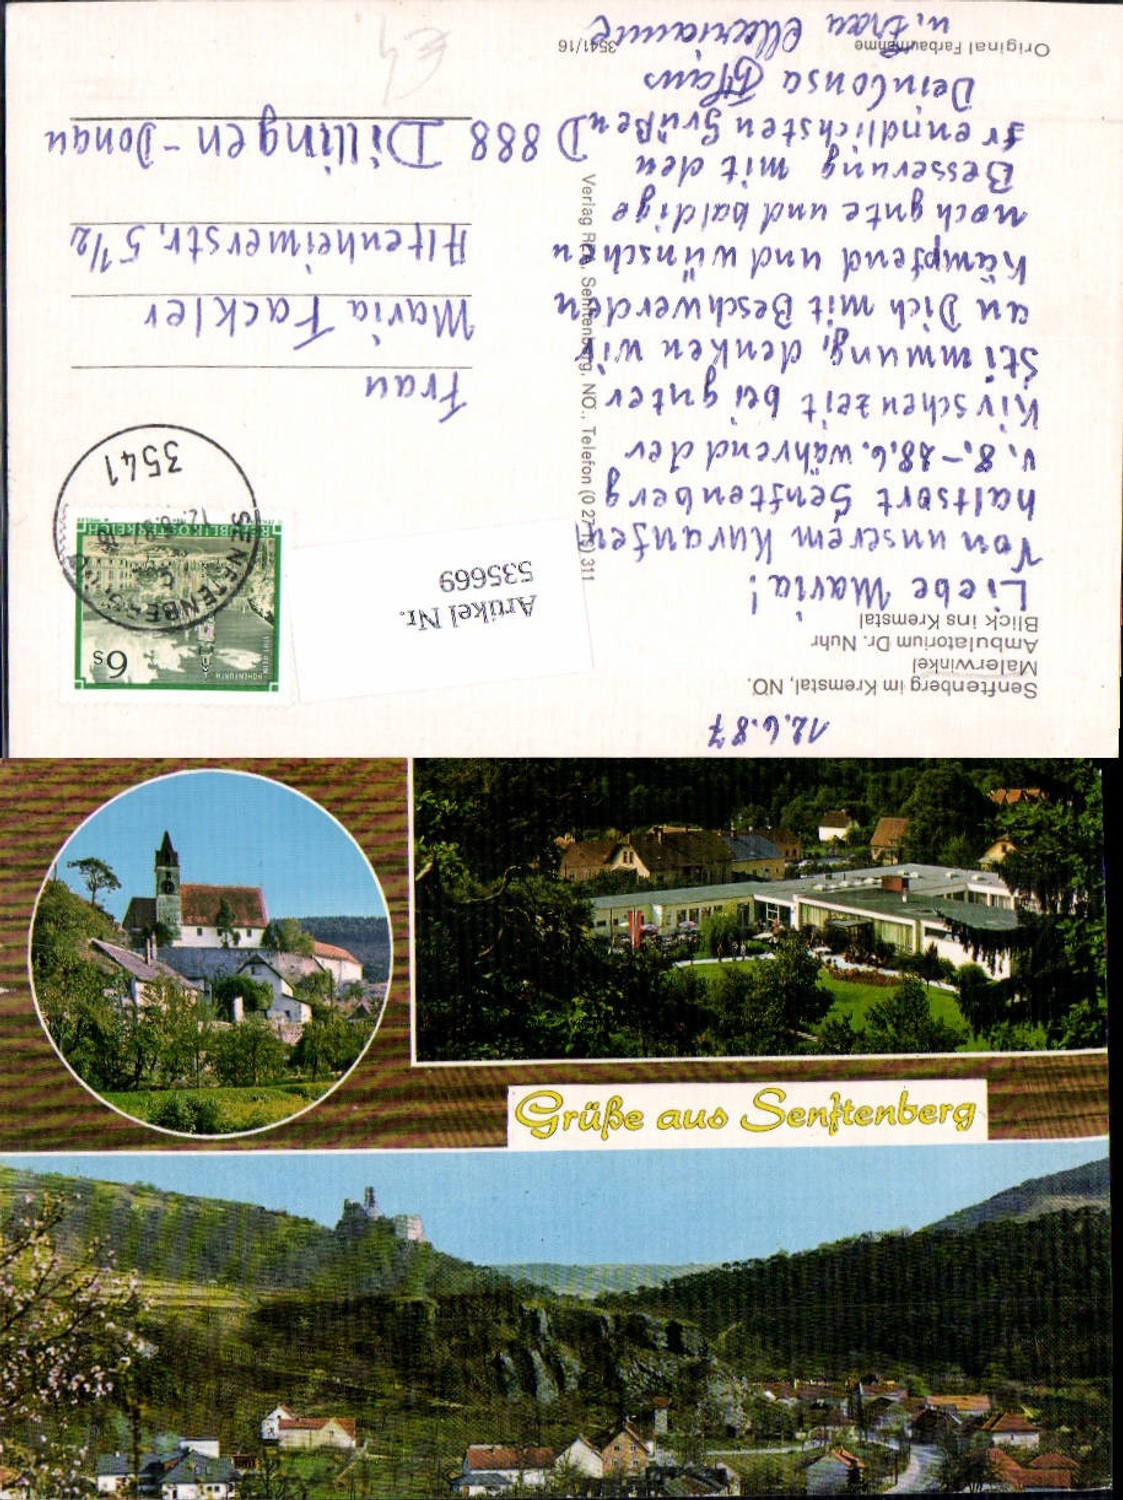 12.6.87
Senftenberg im Kremstal, NÖ.
Malerwinkel
Ambulatorium Dr. Nuhr
Blick ins Kremstal
Liebe Maria!
Von unserem Kuraufent
haltsort Senftenberg
v. 8.-28.6. während der
Kirschenzeit bei guter
Stimmung, denken wir
an Dich mit Beschwerden
kämpfend und wünschen
noch gute und baldige
Besserung mit den
freundlichsten Grüßen
Hans
u. Frau Marianne
Original Farbaufnahme
3541/16
Verlag RETA, Senftenberg, NÖ., Telefon (0 27 19) 311
Artikel Nr.
535669
6 s
HOHENFURTH
REPUBLIK ÖSTERREICH
SENFTENBERG
12.6.87
3541
Frau
Maria Fackler
Altenheimerstr. 5 1/2
D 888 Dillingen-Donau
Grüße aus Senftenberg